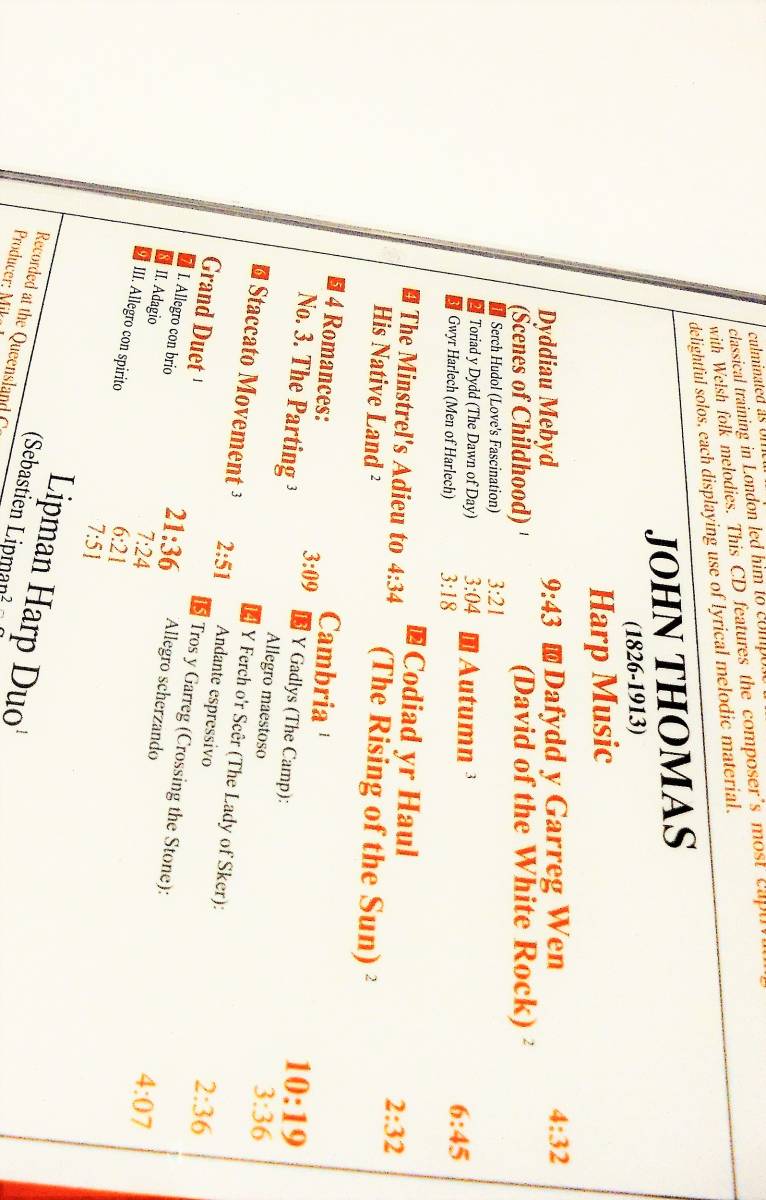 classical training in London led him to compose
with Welsh folk melodies. This CD features the composer's most captivating
delightful solos, each displaying use of lyrical melodic material.
JOHN THOMAS
(1826-1913)
Harp Music
Dyddiau Mebyd
(Scenes of Childhood) 1 9:43
1 Serch Hudol (Love's Fascination) 3:21
2 Toriad y Dydd (The Dawn of Day) 3:04
3 Gwyr Harlech (Men of Harlech) 3:18
4 The Minstrel's Adieu to 4:34
His Native Land 2
5 4 Romances:
No. 3. The Parting 3 3:09
6 Staccato Movement 3 2:51
Grand Duet 1 21:36
7 I. Allegro con brio 7:24
8 II. Adagio 6:21
9 III. Allegro con spirito 7:51
10 Dafydd y Garreg Wen
(David of the White Rock) 2 4:32
11 Autumn 3 6:45
12 Codiad yr Haul
(The Rising of the Sun) 2 2:32
Cambria 1 10:19
13 Y Gadlys (The Camp): 3:36
Allegro maestoso
14 Y Ferch o'r Scêr (The Lady of Sker): 2:36
Andante espressivo
15 Tros y Garreg (Crossing the Stone): 4:07
Allegro scherzando
Lipman Harp Duo 1
(Sebastien Lipman 2
Recorded at the Queensland
Producer: